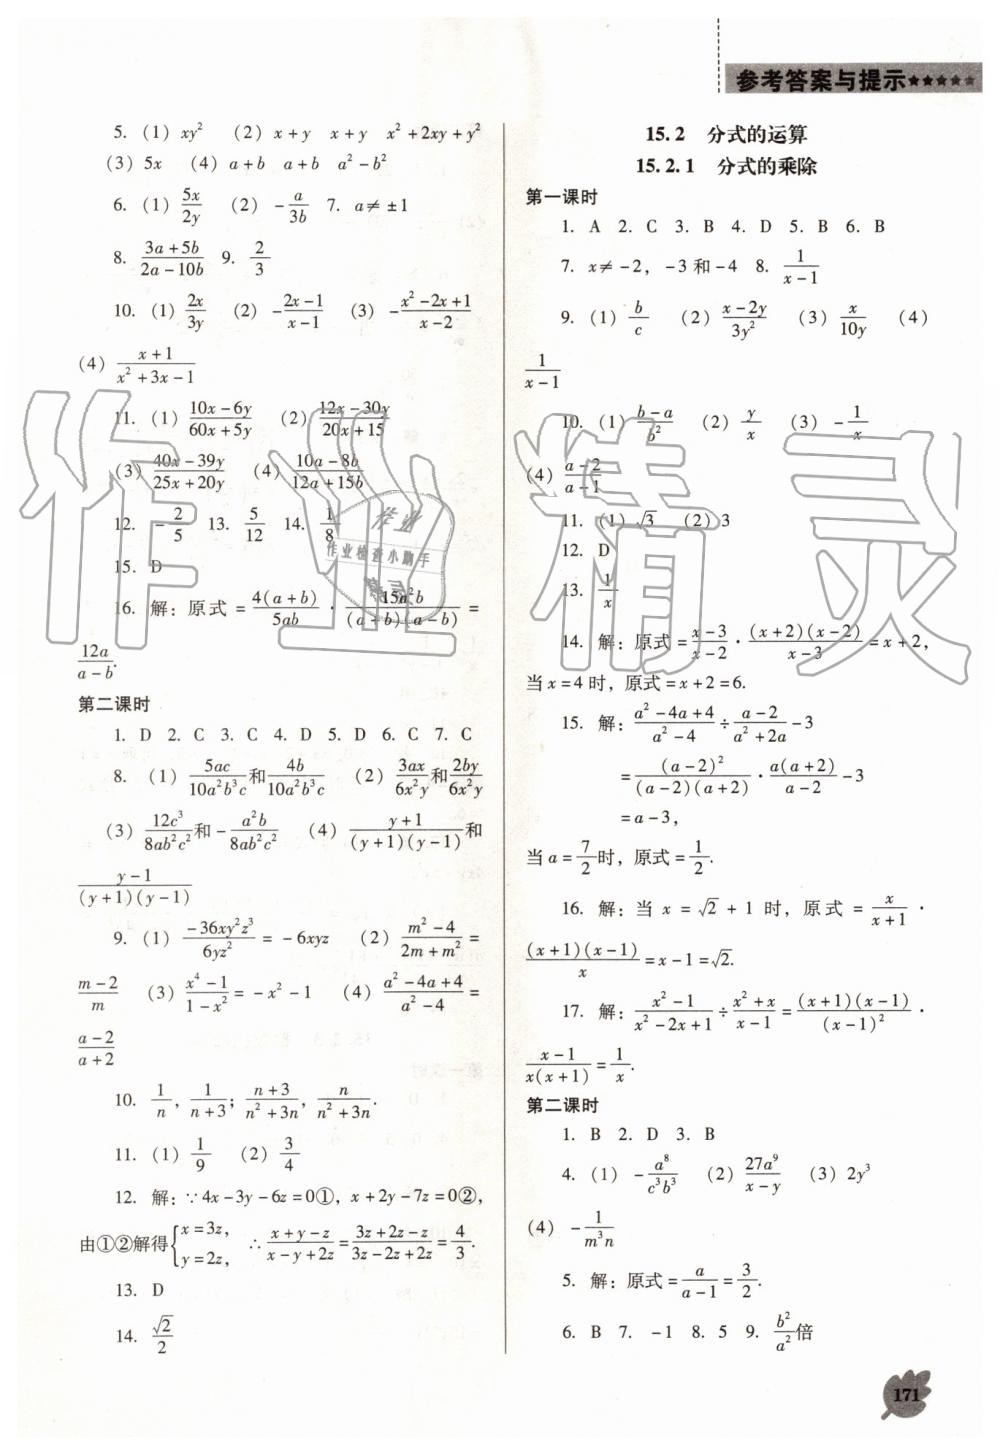 参考答案与提示★★★★★
5. (1) xy² (2) x+y x+y x²+2xy+y²
(3) 5x (4) a+b a+b a²-b²
6. (1) 5x/2y (2) -a/3b 7. a≠±1
8. (3a+5b)/(2a-10b) 9. 2/3
10. (1) 2x/3y (2) -(2x-1)/(x-1) (3) -(x²-2x+1)/(x-2)
(4) (x+1)/(x²+3x-1)
11. (1) (10x-6y)/(60x+5y) (2) (12x-30y)/(20x+15)
(3) (40x-39y)/(25x+20y) (4) (10a-8b)/(12a+15b)
12. -2/5 13. 5/12 14. 1/8
15. D
16. 解：原式=4(a+b)/5ab·15a²b/(a+b)(a-b)=
12a/(a-b).
第二课时
1. D 2. C 3. C 4. D 5. D 6. C 7. C
8. (1) 5ac/10a²b³c和4b/10a²b³c (2) 3ax/6x²y和2by/6x²y
(3) 12c³/8ab²c²和-a²b/8ab²c² (4) (y+1)/(y+1)(y-1)和
(y-1)/(y+1)(y-1)
9. (1) -36xy²z³/6yz²=-6xyz (2) (m²-4)/(2m+m²)=
(m-2)/m (3) (x⁴-1)/(1-x²)=-x²-1 (4) (a²-4a+4)/(a²-4)=
(a-2)/(a+2)
10. 1/n，1/(n+3)；(n+3)/(n²+3n)，n/(n²+3n).
11. (1) 1/9 (2) 3/4
12. 解：∵4x-3y-6z=0①，x+2y-7z=0②，
由①②解得{x=3z，y=2z， ∴(x+y-z)/(x-y+2z)=(3z+2z-z)/(3z-2z+2z)=4/3.
13. D
14. √2/2
15.2 分式的运算
15.2.1 分式的乘除
第一课时
1. A 2. C 3. B 4. D 5. B 6. B
7. x≠-2，-3和-4 8. 1/(x-1)
9. (1) b/c (2) (x-2y)/3y² (3) x/10y (4)
1/(x-1)
10. (1) (b-a)/b² (2) y/x (3) -1/x
(4) (a-2)/(a-1)
11. (1) √3 (2) 3
12. D
13. 1/x
14. 解：原式=(x-3)/(x-2)·(x+2)(x-2)/(x-3)=x+2，
当x=4时，原式=x+2=6.
15. 解：(a²-4a+4)/(a²-4)÷(a-2)/(a²+2a)-3
=(a-2)²/(a-2)(a+2)·a(a+2)/(a-2)-3
=a-3，
当a=7/2时，原式=1/2.
16. 解：当x=√2+1时，原式=x/(x+1)·
(x+1)(x-1)/x=x-1=√2.
17. 解：(x²-1)/(x²-2x+1)÷(x²+x)/(x-1)=(x+1)(x-1)/(x-1)²·
(x-1)/x(x+1)=1/x.
第二课时
1. B 2. D 3. B
4. (1) -a⁸/c³b³ (2) 27a⁹/(x-y) (3) 2y³
(4) -1/m³n
5. 解：原式=a/(a-1)=3/2.
6. B 7. -1 8. 5 9. b²/a²倍
171
作业精灵
作业
作业检查小助手
精灵